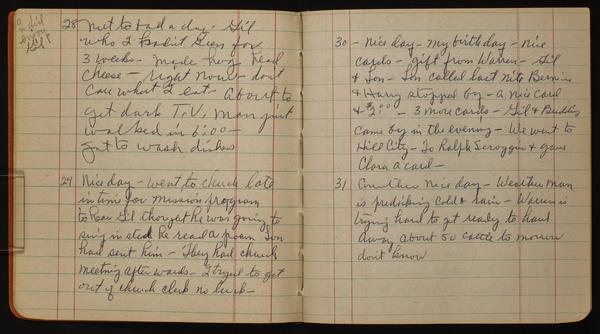 28 - Not to bad a day - Gil
who I hadn't seen for
3 weeks - made hog head
cheese - right now - don't
care what I eat - About to
get dark T.V. man just
walked in 6:00 -
got to wash dishes
29 Nice day - went to church late
in time for mission program
to hear Gil thought he was going to
sing instead he read a poem Len
had sent him - They had church
meeting after wards - I tryed to get
out of church clerk no luck -
30 - Nice day - My birthday - Nice
cards - gift from Warren - Gil
& Len - Len called last nite Bernice
& Harry stopped by - a nice card
& $2.00 - 3 more cards - Gil &
came by in the evening - We went to
Hill City - To Ralph Scroggin & gave
Clara a card -
31 Another nice day - Weather man
is predicking cold & rain - Warren is
trying hard to get ready to haul
away about 50 cattle to morrow
don't know